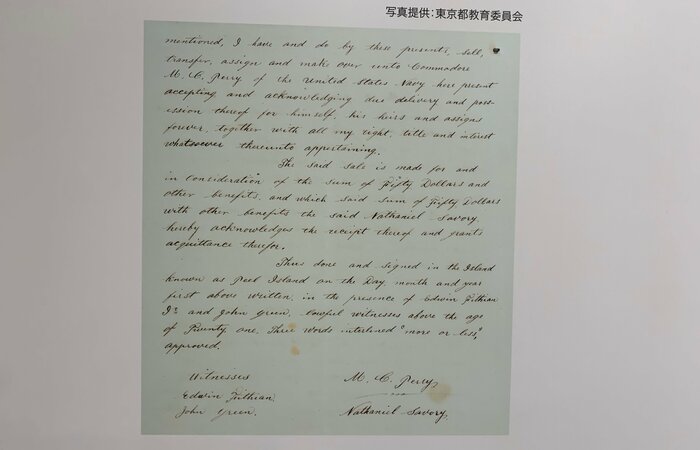 写真提供:東京都教育委員会
mentioned, I have and do by these presents, sell,
transfer, assign and make over unto Commodore
M. C. Perry of the United States Navy here present
accepting and acknowledging due delivery and poss-
ession thereof for himself, his heirs and assigns
forever, together with all my right, title and interest
whatsoever thereunto appertaining.
The said sale is made for and
in consideration of the sum of Fifty Dollars and
other benefits, and which said sum of Fifty Dollars
with other benefits the said Nathaniel Savory,
hereby acknowledges the receipt thereof and grants
acquittance therefor.
Thus done and signed in the Island
known as Peel Island on the Day month and year
first above written, in the presence of Edwin Fithian
Jr and John Green, lawful witnesses above the age
of Twenty one. Three words interlined "more or less,"
approved.
Witnesses
Edwin Fithian
John Green.
M. C. Perry
Nathaniel Savory.